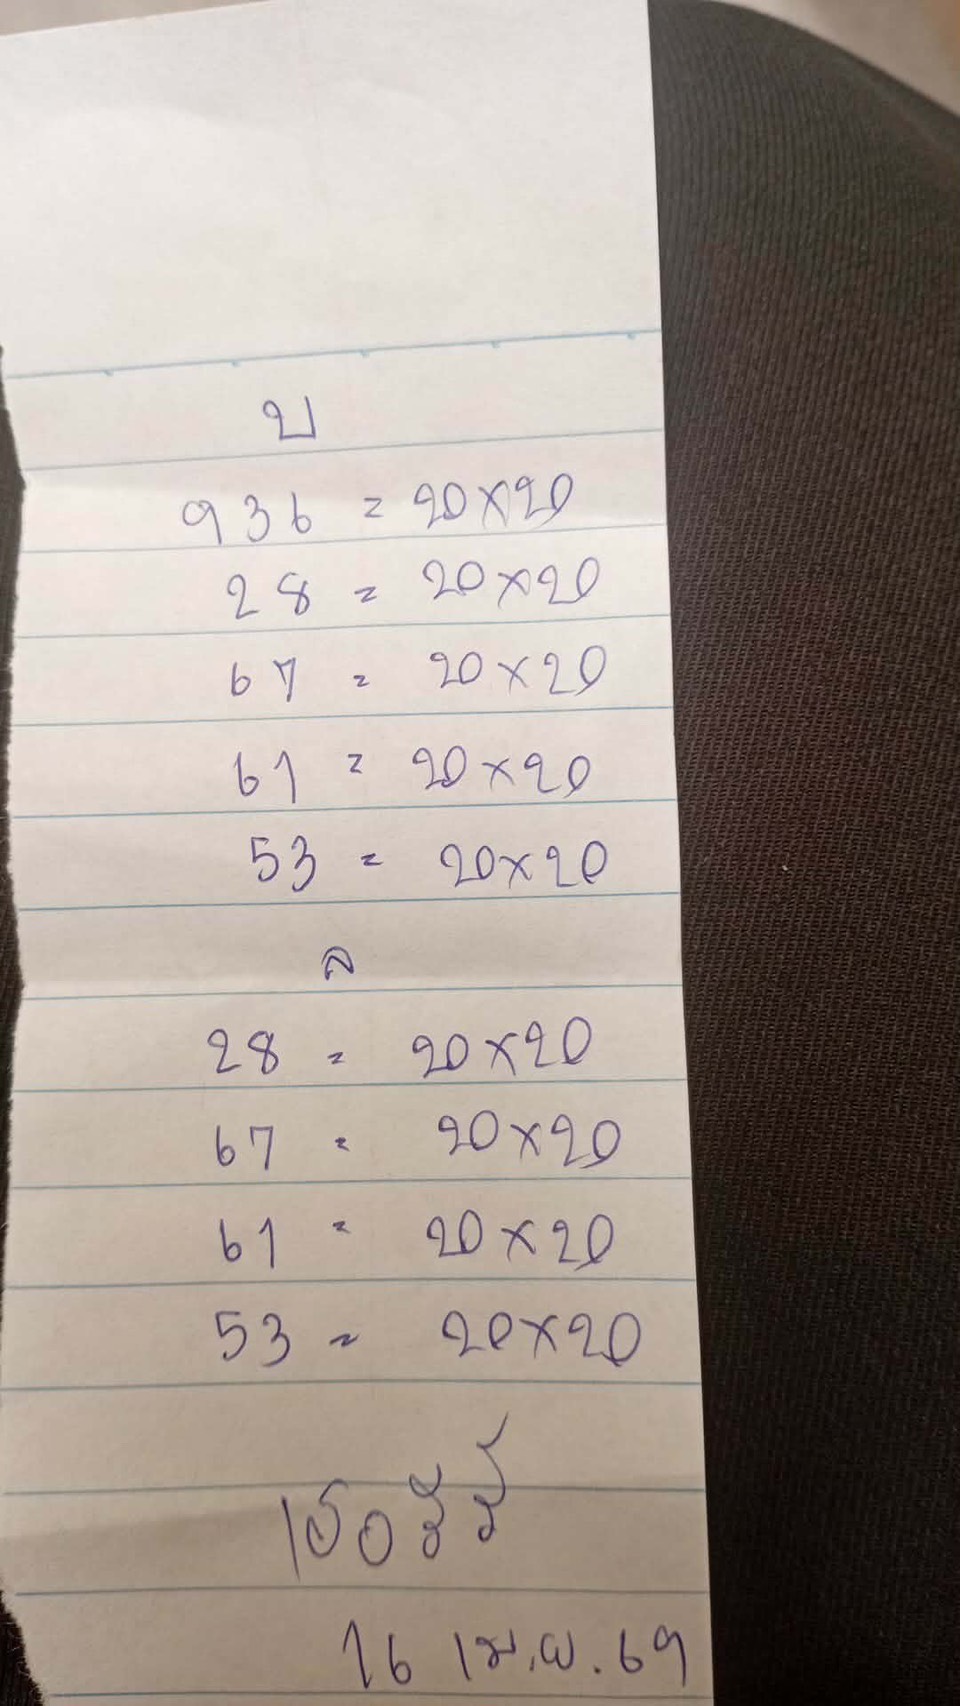 บ
936 = 20×20
28 = 20×20
67 = 20×20
61 = 20×20
53 = 20×20
ล
28 = 20×20
67 = 20×20
61 = 20×20
53 = 20×20
16 เม.ย. 69